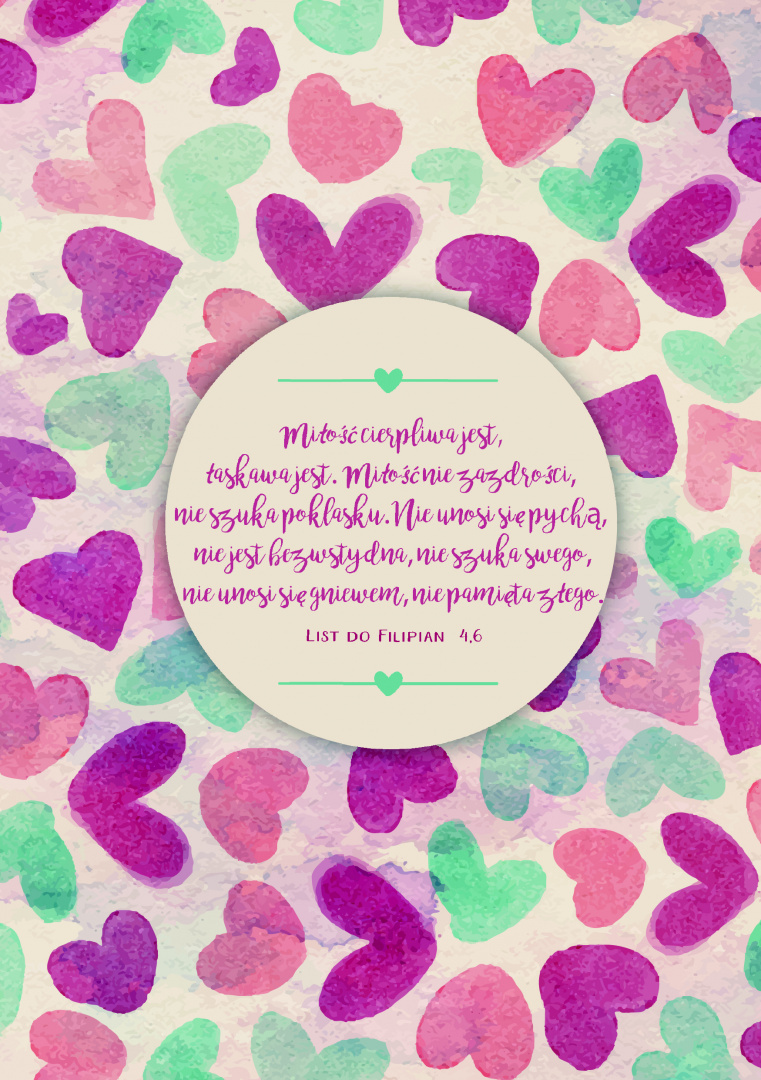 Miłość cierpliwa jest,
łaskawa jest. Miłość nie zazdrości,
nie szuka poklasku. Nie unosi się pychą,
nie jest bezwstydna, nie szuka swego,
nie unosi się gniewem, nie pamięta złego.
List do Filipian 4,6